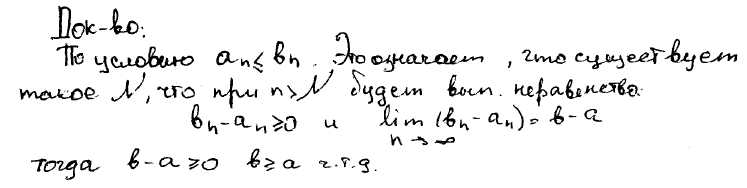 Док-во:
По условию aₙ ≤ bₙ. Это означает, что существует
такое N, что при n > N будет вып. неравенство
bₙ-aₙ ≥ 0 и lim (bₙ-aₙ) = b-a
n → ∞
тогда b-a ≥ 0 b ≥ a ч.т.д.